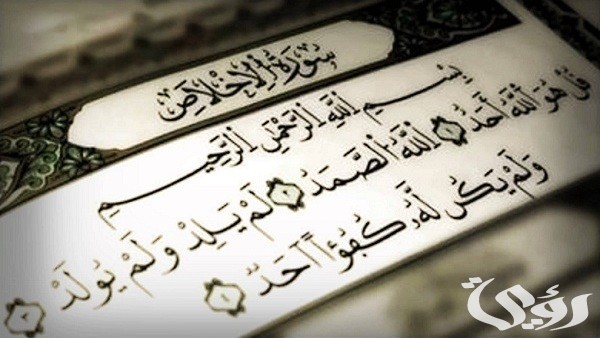 سُورَةُ الإِخْلَاصِ
بِسْمِ اللَّهِ الرَّحْمَٰنِ الرَّحِيمِ
قُلْ هُوَ اللَّهُ أَحَدٌ ۝١ اللَّهُ الصَّمَدُ ۝٢ لَمْ يَلِدْ وَلَمْ يُولَدْ ۝٣
وَلَمْ يَكُن لَّهُ كُفُوًا أَحَدٌ ۝٤
رؤية